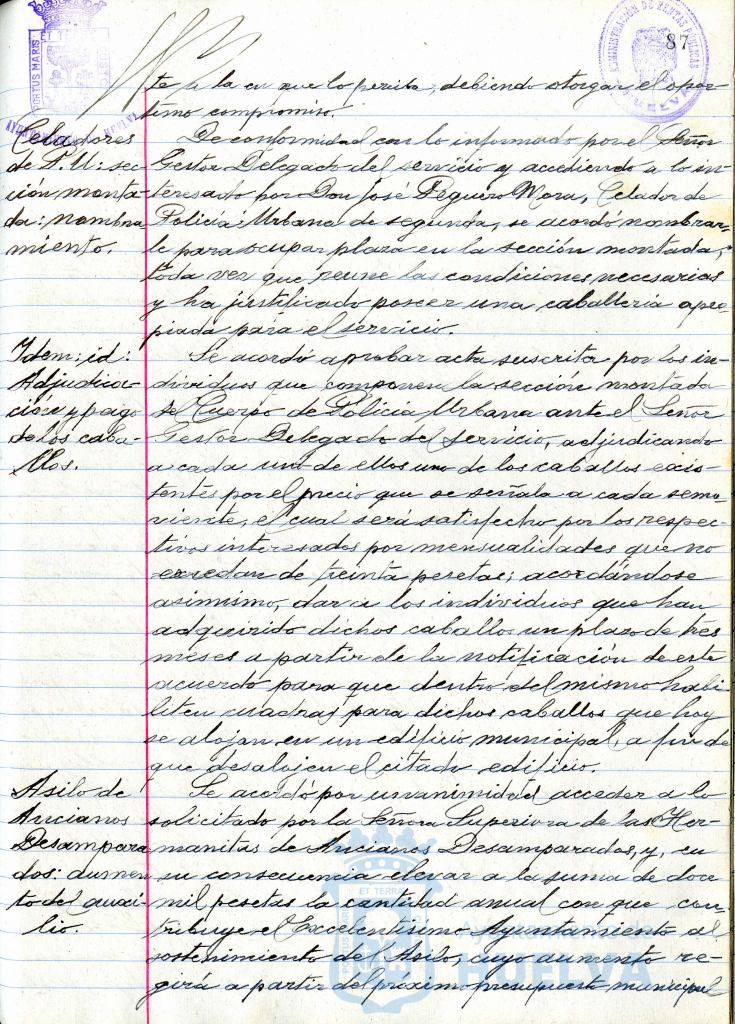 87
PORTUS MARIS
ET TERRAE
CUSTODIA
AYUNTAMIENTO HUELVA
ADMINISTRACIÓN DE RENTAS PÚBLICAS
HUELVA
te a la en que lo perciba, debiendo otorgar el opor-
tuno compromiso.
Celadores
de P. U: sec-
ción monta-
da: nombra-
miento.
De conformidad con lo informado por el Señor
Gestor Delegado del servicio y accediendo a lo in-
teresado por Don José Peguero Mora, Celador de
Policía Urbana de segunda, se acordó nombrar-
le para ocupar plaza en la sección montada,
toda vez que reune las condiciones necesarias
y ha justificado poseer una caballería apro-
piada para el servicio.
Idem: id:
Adjudica-
ción y pago
de los caba-
llos.
Se acordó aprobar acta suscrita por los in-
dividuos que componen la sección montada
del Cuerpo de Policía Urbana ante el Señor
Gestor Delegado del servicio, adjudicando
a cada uno de ellos uno de los caballos exis-
tentes por el precio que se señala a cada semo-
viente, el cual será satisfecho por los respec-
tivos interesados por mensualidades que no
excedan de treinta pesetas; acordándose
asimismo, dar a los individuos que han
adquirido dichos caballos un plazo de tres
meses a partir de la notificación de este
acuerdo para que dentro del mismo habi-
liten cuadras para dichos caballos que hoy
se alojan en un edificio municipal, a fin de
que desalojen el citado edificio.
Asilo de
Ancianos
Desampara-
dos: aumen-
to del auxi-
lio.
Se acordó por unanimidad acceder a lo
solicitado por la Señora Superiora de las Her-
manitas de Ancianos Desamparados, y, en
su consecuencia elevar a la suma de doce
mil pesetas la cantidad anual con que con-
tribuye el Excelentísimo Ayuntamiento al
sostenimiento del Asilo, cuyo aumento re-
girá a partir del próximo presupuesto municipal
PORTUS MARIS
ET TERRAE
Ayuntamiento de
HUELVA